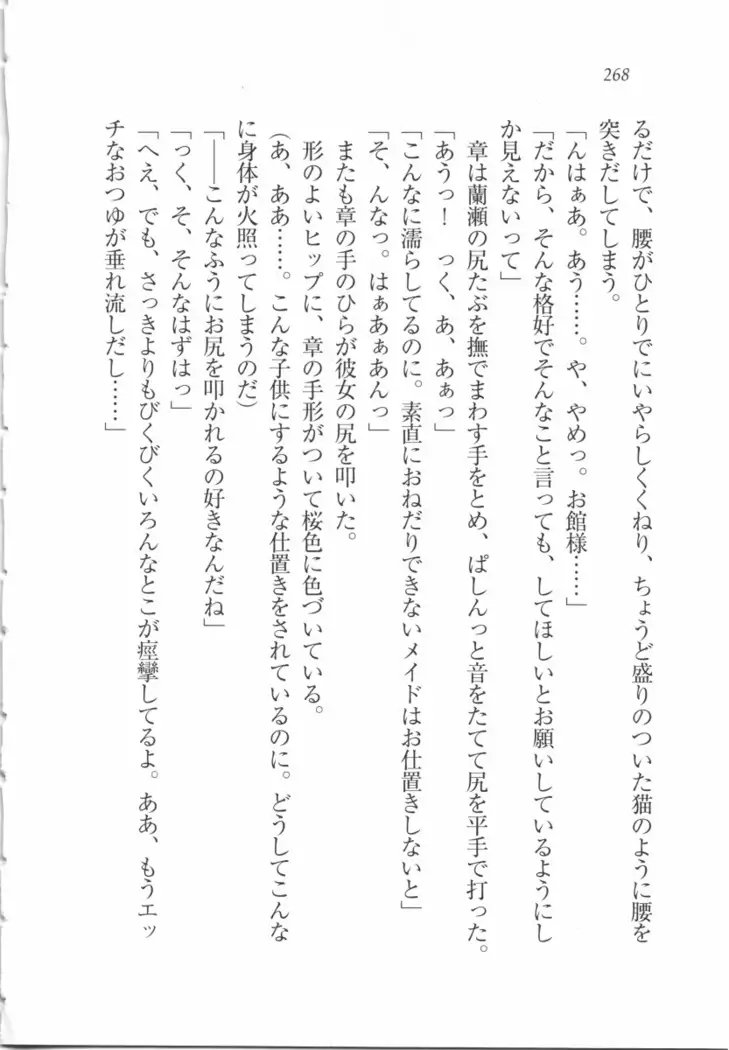 268
るだけで、腰がひとりでにいやらしくくねり、ちょうど盛りのついた猫のように腰を
突きだしてしまう。
「んはぁあ。あう……。や、やめっ。お館様……」
「だから、そんな格好でそんなこと言っても、してほしいとお願いしているようにし
か見えないって」
章は蘭瀬の尻たぶを撫でまわす手をとめ、ぱしんっと音をたてて尻を平手で打った。
「あうっ！　っく、あ、あぁっ」
「こんなに濡らしてるのに。素直におねだりできないメイドはお仕置きしないと」
「そ、んなっ。はぁあぁあんっ」
またも章の手のひらが彼女の尻を叩いた。
形のよいヒップに、章の手形がついて桜色に色づいている。
(あ、ああ……。こんな子供にするような仕置きをされているのに。どうしてこんな
に身体が火照ってしまうのだ)
「――こんなふうにお尻を叩かれるの好きなんだね」
「っく、そ、そんなはずはっ」
「へえ、でも、さっきよりもびくびくいろんなとこが痙攣してるよ。ああ、もうエッ
チなおつゆが垂れ流しだし……」